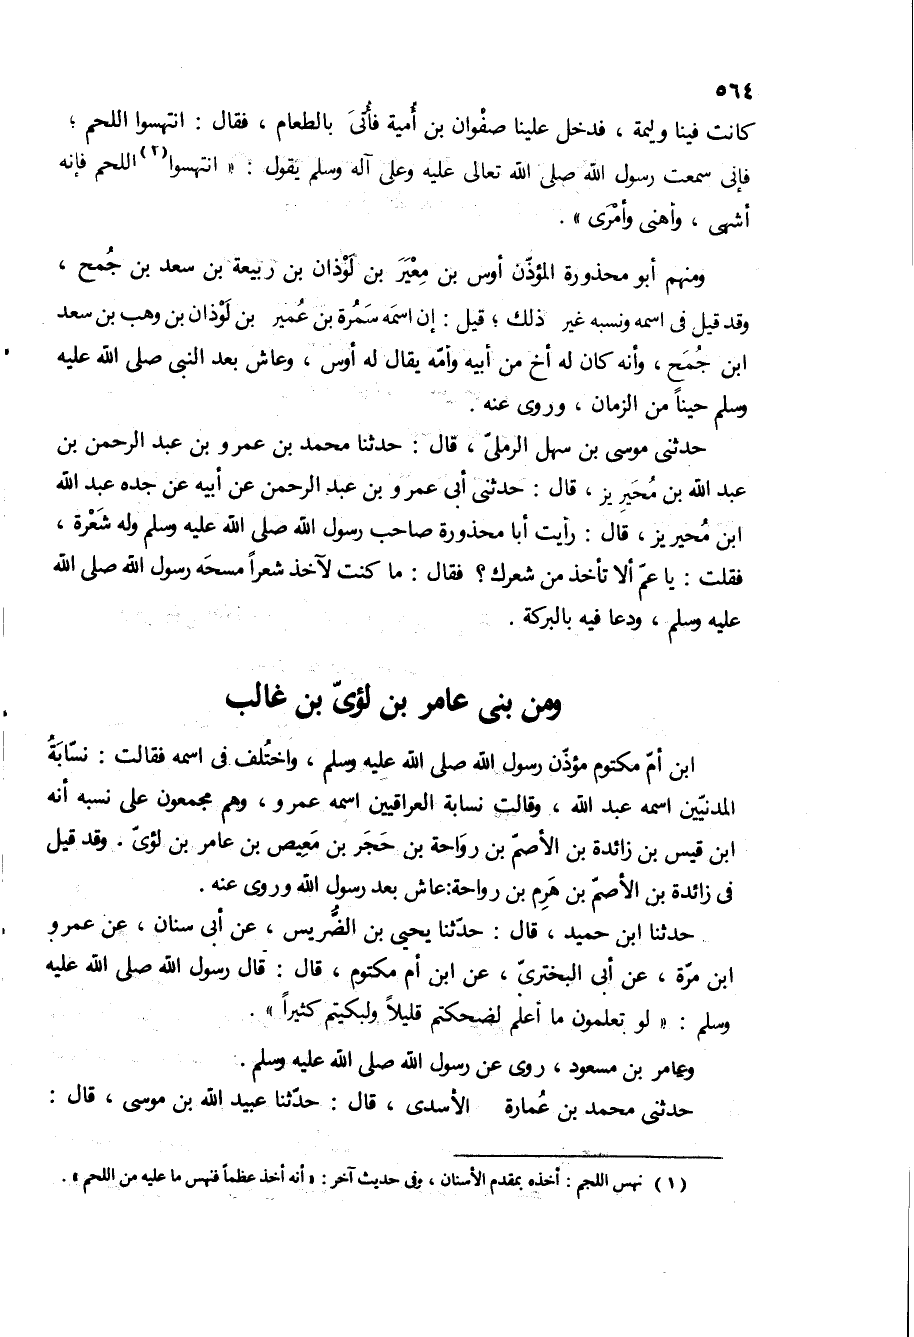 ٥٦٤
كانت فينا وليمة ، فدخل علينا صفْوان بن أُمية فأُتىَ بالطعام ، فقال : انتهسوا اللحم ؛
فإنى سمعت رسول الله صلى الله تعالى عليه وعلى آله وسلم يقول : « انتهسوا(٢) اللحم فإنه
أشهى ، وأهنى وأمْرَى » .
ومنهم أبو محذورة المؤذّن أوس بن مِعْيَر بن لَوْذان بن ربيعة بن سعد بن جُمح ،
وقد قيل فى اسمه ونسبه غير ذلك ؛ قيل : إن اسمَه سَمُرة بن عُمير بن لَوْذان بن وهب بن سعد
ابن جُمَح ، وأنه كان له أخ من أبيه وأمّه يقال له أوس ، وعاش بعد النبى صلى الله عليه
وسلم حيناً من الزمان ، وروى عنه .
حدثنى موسى بن سهل الرملىّ ، قال : حدثنا محمد بن عمرو بن عبد الرحمن بن
عبد الله بن مُحَيرِيز ، قال : حدثنى أبى عمرو بن عبد الرحمن عن أبيه عن جده عبد الله
ابن مُحيريز ، قال : رأيت أبا محذورة صاحب رسول الله صلى الله عليه وسلم وله شَعْرة ،
فقلت : يا عمّ ألا تأخذ من شعرك؟ فقال : ما كنت لآخذ شعراً مسحَه رسول الله صلى الله
عليه وسلم ، ودعا فيه بالبركة .
ومن بنى عامر بن لؤىّ بن غالب
ابن أمّ مكتوم مؤذّن رسول الله صلى الله عليه وسلم ، واختُلف فى اسمه فقالت : نسّابَةُ
المدنيّين اسمه عبد الله ، وقالت نسابة العراقيين اسمه عمرو ، وهم مجمعون على نسبه أنه
ابن قيس بن زائدة بن الأصمّ بن رواحة بن حَجَر بن مَعِيص بن عامر بن لؤىّ . وقد قيل
فى زائدة بن الأصمّ بن هَرِم بن رواحة:عاش بعد رسول الله وروى عنه .
حدثنا ابن حميد ، قال : حدّثنا يحيى بن الضُّريس ، عن أبى سنان ، عن عمرو
ابن مرّة ، عن أبى البخترىّ ، عن ابن أم مكتوم ، قال : قال رسول الله صلى الله عليه
وسلم : « لو تعلمون ما أعلم لضحكتم قليلاً ولبكيتم كثيراً » .
وعامر بن مسعود ، روى عن رسول الله صلى الله عليه وسلم .
حدثنى محمد بن عُمارة الأسدى ، قال : حدّثنا عبيد الله بن موسى ، قال :
(١) نهس اللحم : أخذه بمقدم الأسنان ، وفى حديث آخر : « أنه أخذ عظماً فنهس ما عليه من اللحم » .